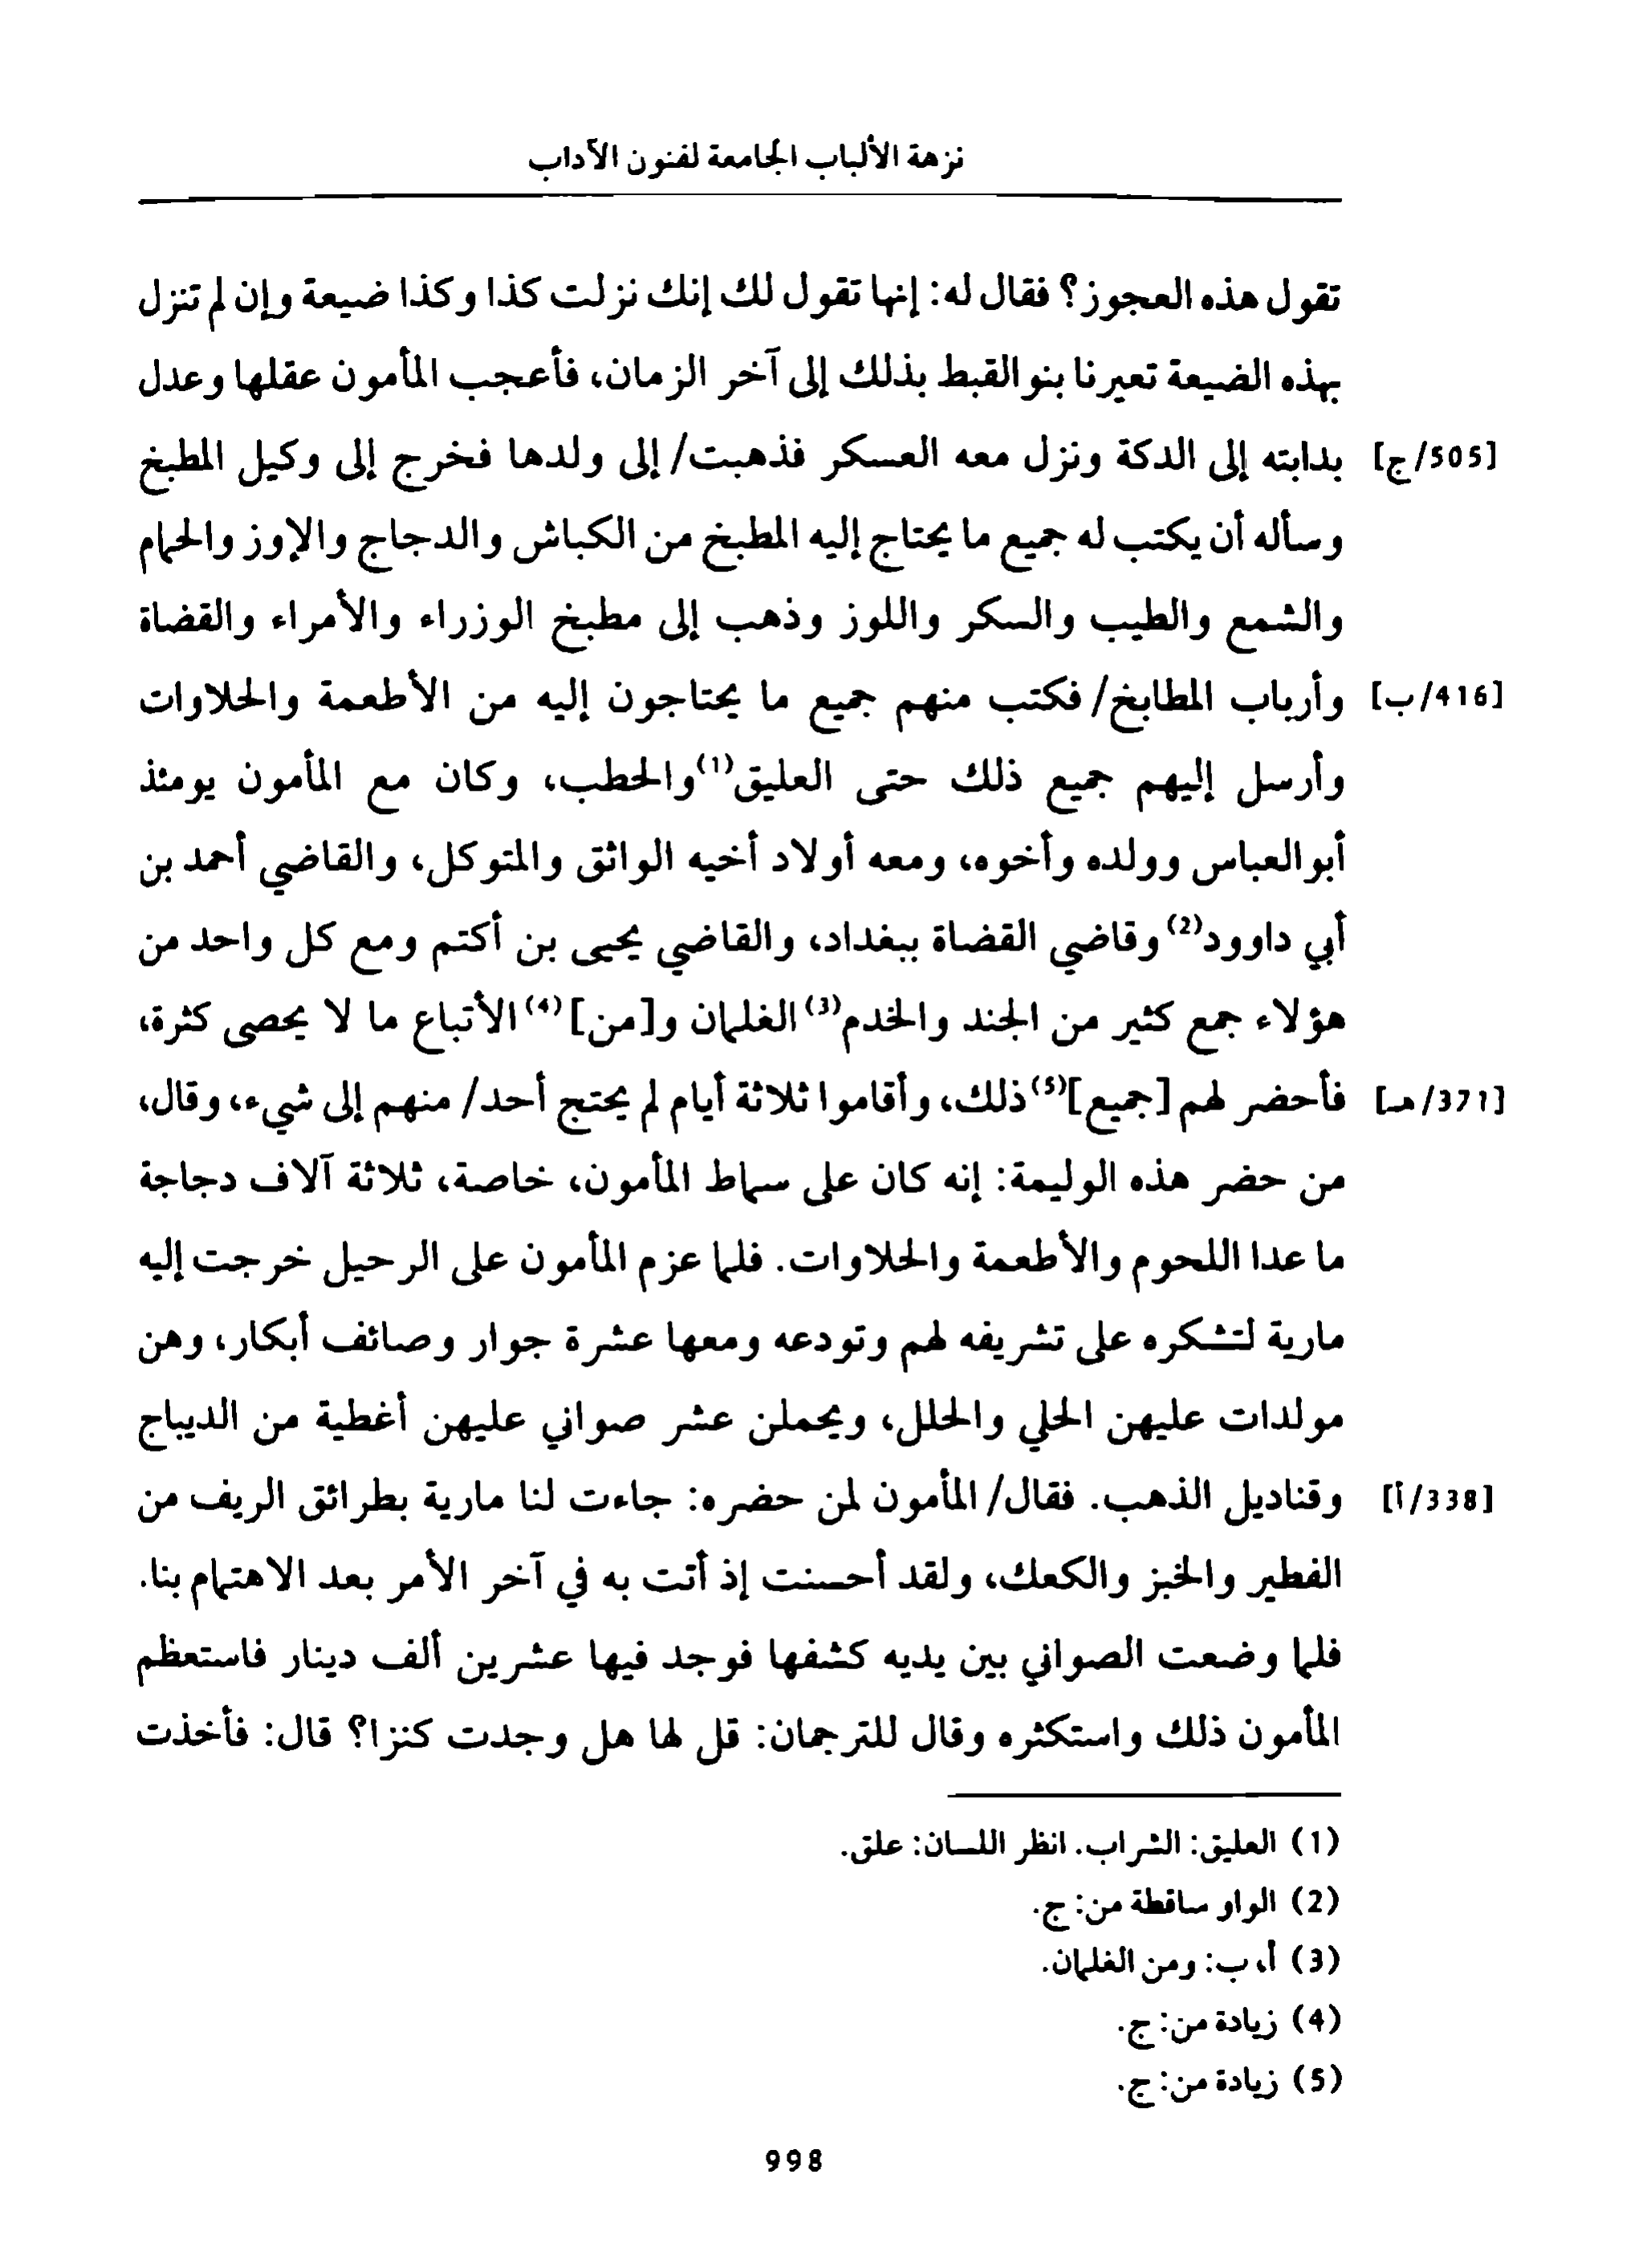 نزهة الألباب الجامعة لفنون الآداب
تقول هذه العجوز؟ فقال له: إنها تقول لك إنك نزلت كذا وكذا ضيعة وإن لم تنزل
بهذه الضيعة تعيرنا بنو القبط بذلك إلى آخر الزمان، فأعجب المأمون عقلها وعدل
[505/ج] بدابته إلى الدكة ونزل معه العسكر فذهبت/ إلى ولدها فخرج إلى وكيل المطبخ
وسأله أن يكتب له جميع ما يحتاج إليه المطبخ من الكباش والدجاج والإوز والحمام
والشمع والطيب والسكر واللوز وذهب إلى مطبخ الوزراء والأمراء والقضاة
[416/ب] وأرباب المطابخ/ فكتب منهم جميع ما يحتاجون إليه من الأطعمة والحلاوات
وأرسل إليهم جميع ذلك حتى العليق(1) والحطب، وكان مع المأمون يومئذ
أبو العباس وولده وأخوه، ومعه أولاد أخيه الواثق والمتوكل، والقاضي أحمد بن
أبي داوود(2) وقاضي القضاة ببغداد، والقاضي يحيى بن أكتم ومع كل واحد من
هؤلاء جمع كثير من الجند والخدم(3) الغلمان و[من](4) الأتباع ما لا يحصى كثرة،
[371/هـ] فأحضر لهم [جميع](5) ذلك، وأقاموا ثلاثة أيام لم يحتج أحد/ منهم إلى شيء، وقال،
من حضر هذه الوليمة: إنه كان على سماط المأمون، خاصة، ثلاثة آلاف دجاجة
ما عدا اللحوم والأطعمة والحلاوات. فلما عزم المأمون على الرحيل خرجت إليه
مارية لتشكره على تشريفه لهم وتودعه ومعها عشرة جوار وصائف أبكار، وهن
مولدات عليهن الحلي والحلل، ويحملن عشر صواني عليهن أغطية من الديباج
[338/أ] وقناديل الذهب. فقال/ المأمون لمن حضره: جاءت لنا مارية بطرائق الريف من
الفطير والخبز والكعك، ولقد أحسنت إذ أتت به في آخر الأمر بعد الاهتمام بنا.
فلما وضعت الصواني بين يديه كشفها فوجد فيها عشرين ألف دينار فاستعظم
المأمون ذلك واستكثره وقال للترجمان: قل لها هل وجدت كنزا؟ قال: فأخذت
(1) العليق: الشراب. انظر اللسان: علق.
(2) الواو ساقطة من: ج.
(3) أ، ب: ومن الغلمان.
(4) زيادة من: ج.
(5) زيادة من: ج.
998